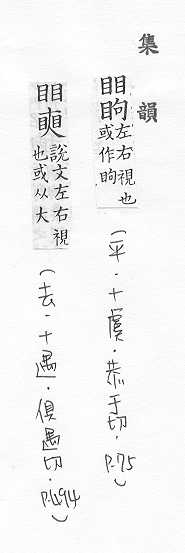 集韻
䀠眗左右視也或作眗
(平.十虞.恭于切.P.75)
䀠說文左右視也或从大
(去.十遇.俱遇切.P.494)